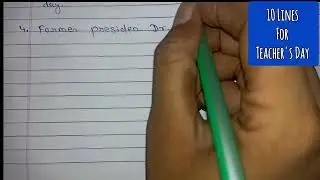 day.
4. Former presiden Dr.
10 Lines
For
Teacher's Day